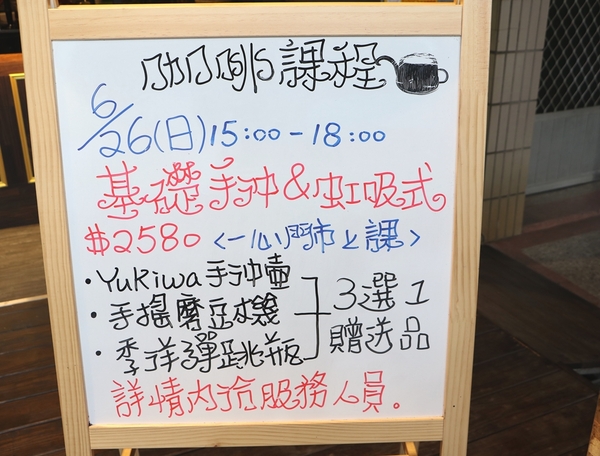 咖啡課程
6/26(日)15:00-18:00
基礎手沖&虹吸式
$2580 <一心門市上課>
·Yukiwa手沖壺
·手搖磨豆機
·季洋彈跳瓶
3選1
贈送品
詳情內洽服務人員。